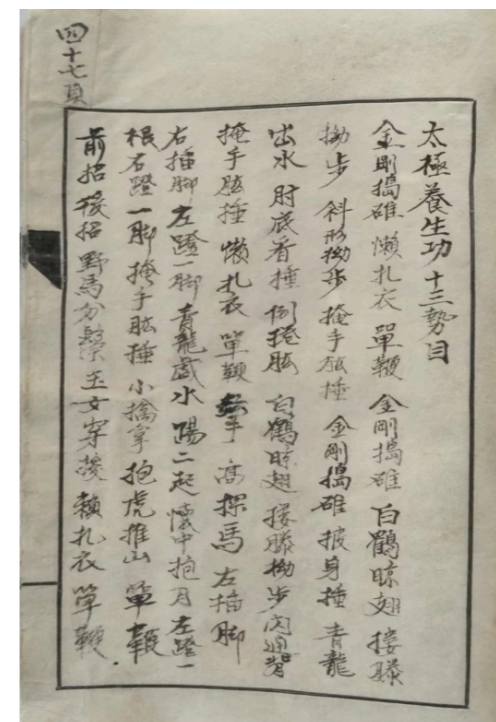 四十七頁
太極養生功十三勢目
金剛搗碓 懶扎衣 單鞭 金剛搗碓 白鶴晾翅 摟膝
拗步 斜形拗步 掩手肱捶 金剛搗碓 披身捶 青龍
出水 肘底看捶 倒捲肱 白鶴晾翅 摟膝拗步 閃通背
掩手肱捶 懶扎衣 單鞭 手 高探馬 右插脚
右插脚 左蹬一脚 青龍戲水 踢二起 懷中抱月 左蹬一
根 右蹬一脚 掩手肱捶 小擒拿 抱虎推山 單鞭
前招 後招 野馬分鬃 玉女穿梭 懶扎衣 單鞭